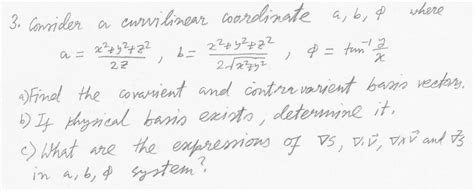 3. Consider a curvilinear coordinate a, b, φ where
a = x²+y²+z² / 2z , b = x²+y²+z² / 2√x²+y² , φ = tan⁻¹ y/x
a) Find the covarient and contravarient basis vectors.
b) If physical basis exists, determine it.
c) What are the expressions of ∇s, ∇.v⃗, ∇∧v⃗ and ∇²s
in a, b, φ system?